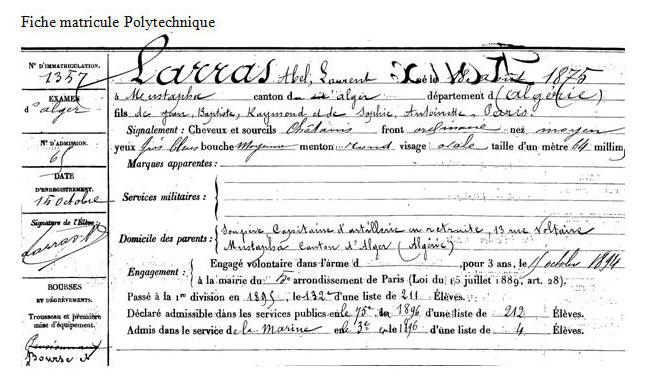 Fiche matricule Polytechnique
N° D'IMMATRICULATION.
1357
EXAMEN
d'alger
N° D'ADMISSION.
65
DATE
D'ENREGISTREMENT.
15 octobre
Signature de l'Élève:
Larras A
BOURSES
ET DÉGRÈVEMENTS.
Trousseau et première
mise d'équipement.
Pensionnaire
Bourse
Larras Abel, Laurent X né le 18 août 1875
à Mustapha canton d'alger département d (algérie)
fils de Jean, Baptiste, Raymond et de Sophie, Antoinette, Paris
Signalement: Cheveux et sourcils Châtains front ordinaire nez moyen
yeux gris bleus bouche Moyenne menton rond visage ovale taille d'un mètre 64 millim
Marques apparentes:
Services militaires:
Domicile des parents: Son père, Capitaine d'artillerie en retraite, 13 rue Voltaire
Mustapha Canton d'Alger (Algérie)
Engagement: Engagé volontaire dans l'arme d , pour 3 ans, le 15 octobre 1894
à la mairie du 5e arrondissement de Paris (Loi du 15 juillet 1889, art. 28).
Passé à la 1re division en 1895 le 132e d'une liste de 211 Élèves.
Déclaré admissible dans les services publics en le 75e en 1896 d'une liste de 212 Élèves.
Admis dans le service de la Marine en le 3e en le 1896 d'une liste de 4 Élèves.